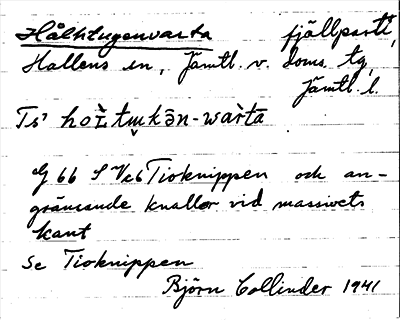 Hålktugenvarta fjällparti,
Hallens sn, Jämtl. v. doms. tg,
Jämtl. l.
G 66 S Vcb Tioknippen och an-
gränsande knallar vid massivets
kant
Se Tioknippen
Björn Collinder 1941